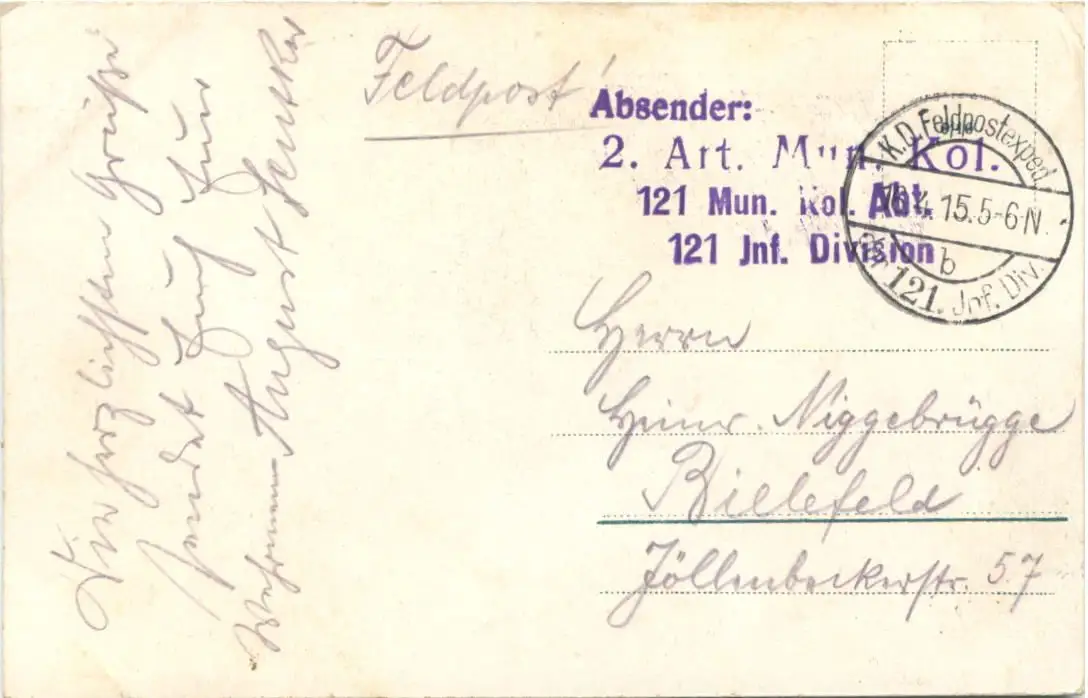 Feldpost!
Absender:
2. Art. Mun. Kol.
121 Mun. Kol. Abt.
121 Jnf. Division
K.D. Feldpostexped.
16.4.15.5-6N.
b
der 121. Jnf. Div.
Herrn
Heinr. Niggebrügge
Bielefeld
Jöllenbeckerstr. 57
Die herzlichsten Grüße
sendet Euch Euer
Wehrmann August